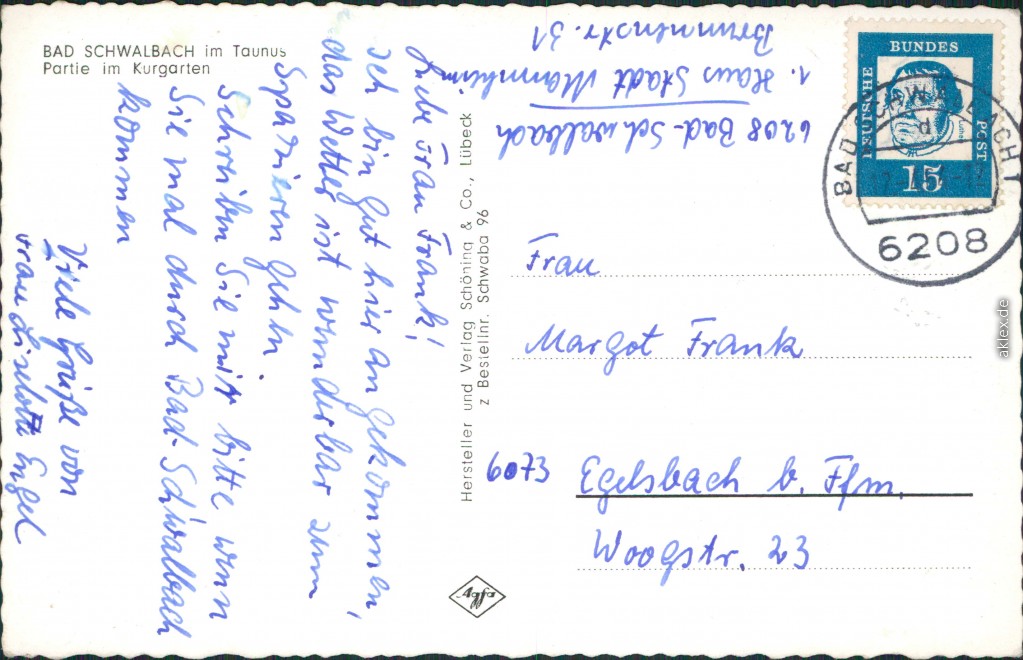 BAD SCHWALBACH im Taunus
Partie im Kurgarten
Liebe Frau Frank!
Ich bin gut hier angekommen,
das Wetter ist wunderbar zum
Spazieren gehn.
Schreiben Sie mir bitte wenn
Sie mal durch Bad-Schwalbach
kommen
Viele Grüße von
Frau Liselotte Engel
Hersteller und Verlag Schöning & Co., Lübeck
z Bestellnr. Schwaba 96
6208 Bad-Schwalbach
1. Haus Stadt Mannheim
Brunnenstr. 31
DEUTSCHE
BUNDES
POST
Luther
15
BAD SCHWALBACH 1
d
6208
Frau
Margot Frank
6073 Egelsbach b. Ffm.
Woogstr. 23
Agfa
aklex.de